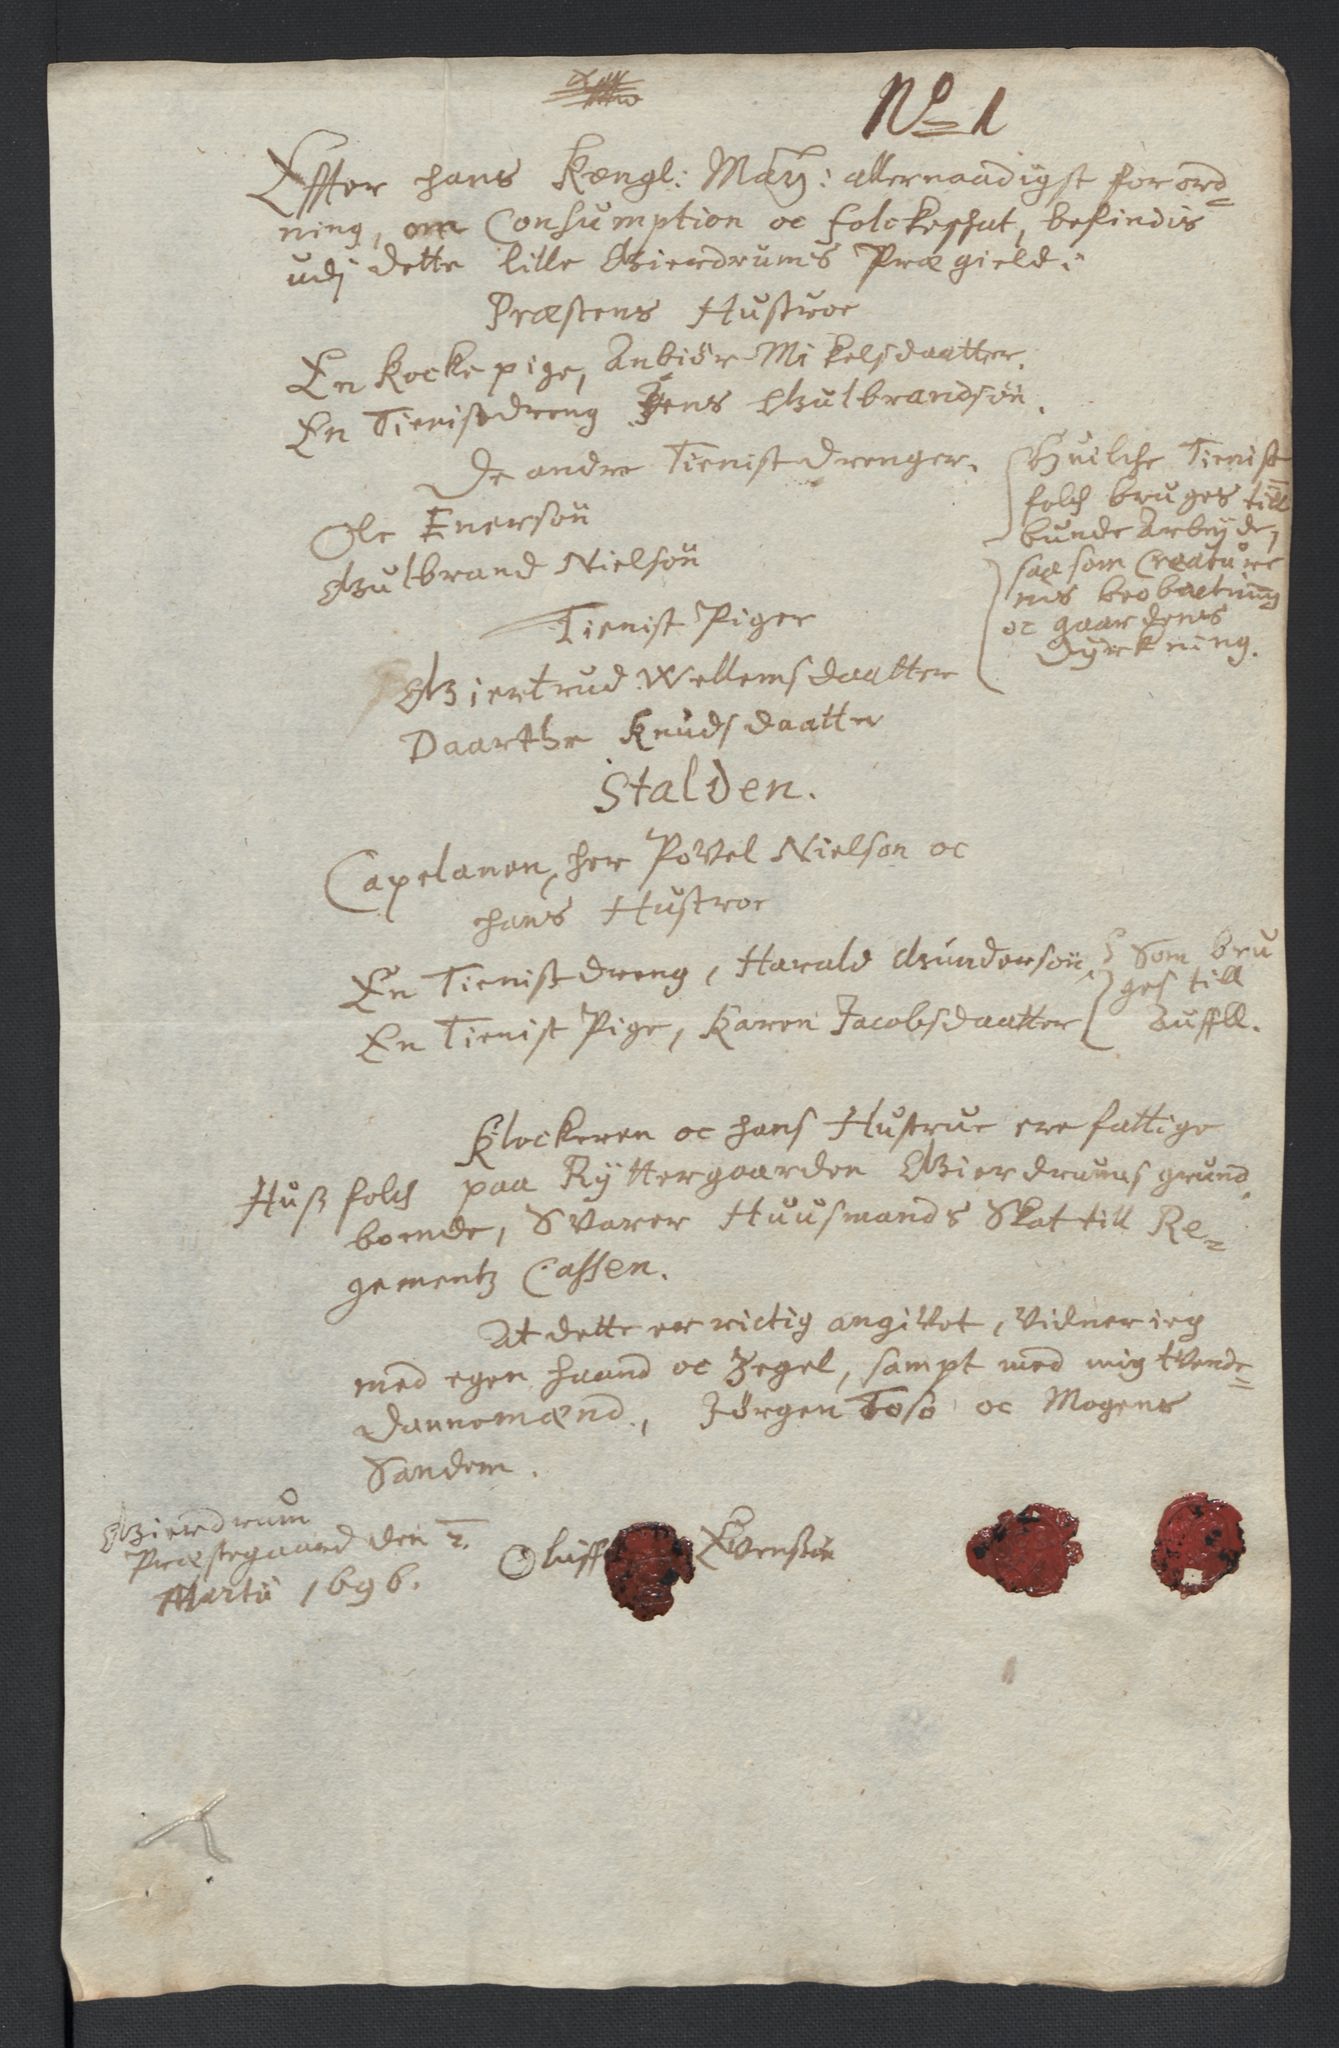 No 1
Effter hans Kongl: May: allernaadigst forord=
ning, om Consumption oc folckeschat, befindis
udj dette lille Gierdrums Præegield:
Præstens Hustroe
En Kockepige, Anbiör Mikelsdaatter.
En Tienistdreng Jens Gulbrandsön.
De andre Tienistdrenger.
Ole Enersön
Gulbrand Nielsön
Tienist Piger
Giertrud Wellemsdaatter
Daarthe Knudsdaatter
Huilche Tienist=
folch bruges till
bunde Arbeyde,
saasom Creature
nis beobactning
oc gaardens
Dyrckning.
Stalden.
Capelanen, her Povel Nielson oc
hans Hustroe
En Tienistdreng, Harald Gundersön
En Tienist Pige, Karen Jacobsdaatter
Som bru
ges till
Klockeren oc hans Hustrue ere fattige
Husz folch paa Ryttergaarden Gierdrums grund
boende, Svarer Huusmands Skat till Re=
gementz Cassen.
At dette er rictig angivet, vidner ieg
med egen haand oc Zegel, sampt med mig tvende
Dannemænd, Jörgen Foso oc Mogens
Sandem.
Gierdrum
Præstegaard den 2.
Martii 1696.
Oluff Evensön